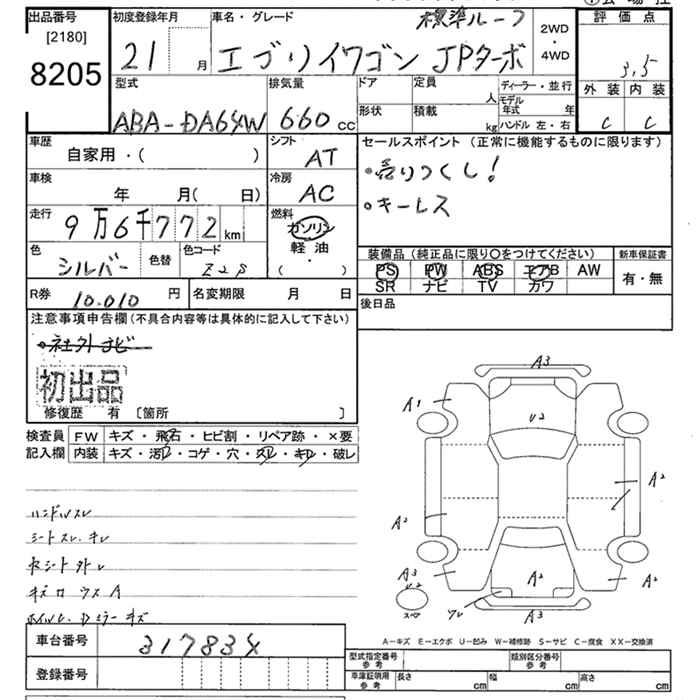 出品番号
[2180]
8205
初度登録年月
21 月
車名・グレード
標準ルーフ
エブリイワゴン JPターボ
2WD
・
4WD
評価点
3,5
外装 内装
C C
型式
ABA-DA64W
排気量
660 cc
ドア
形状
定員
人
積載
kg
ディーラー・並行
モデル年式 年
ハンドル 左・右
車歴
自家用・( )
シフト
AT
セールスポイント (正常に機能するものに限ります)
・売りつくし!
・キーレス
車検
年 月(日)
冷房
AC
走行
9万6千772km
燃料
ガソリン
軽油
・
( )
色
シルバー
色替
色コード
Z2S
装備品 (純正品に限り〇をつけてください)
PS PW ABS エアB AW
SR ナビ TV カワ
新車保証書
有・無
R券
10.010 円
名変期限 月 日
後日品
注意事項申告欄(不具合内容等は具体的に記入して下さい)
・社外ナビ
初出品
修復歴 有 〔箇所 〕
検査員
記入欄
FW キズ・飛石・ヒビ割・リペア跡・×要
内装 キズ・汚レ・コゲ・穴・スレ・キレ・破レ
ハンドルスレ
シートスレ・キレ
A3
A1
U2
A2
A2
A2
A3
U2
A2
A2
スペア
A3
A-キズ E-エクボ U-凹み W-補修跡 S-サビ C-腐食 XX-交換済
車台番号
317834
登録番号
型式指定番号
参考
類別区分番号
参考
車庫証明用
参考
長さ cm
幅 cm
高さ cm